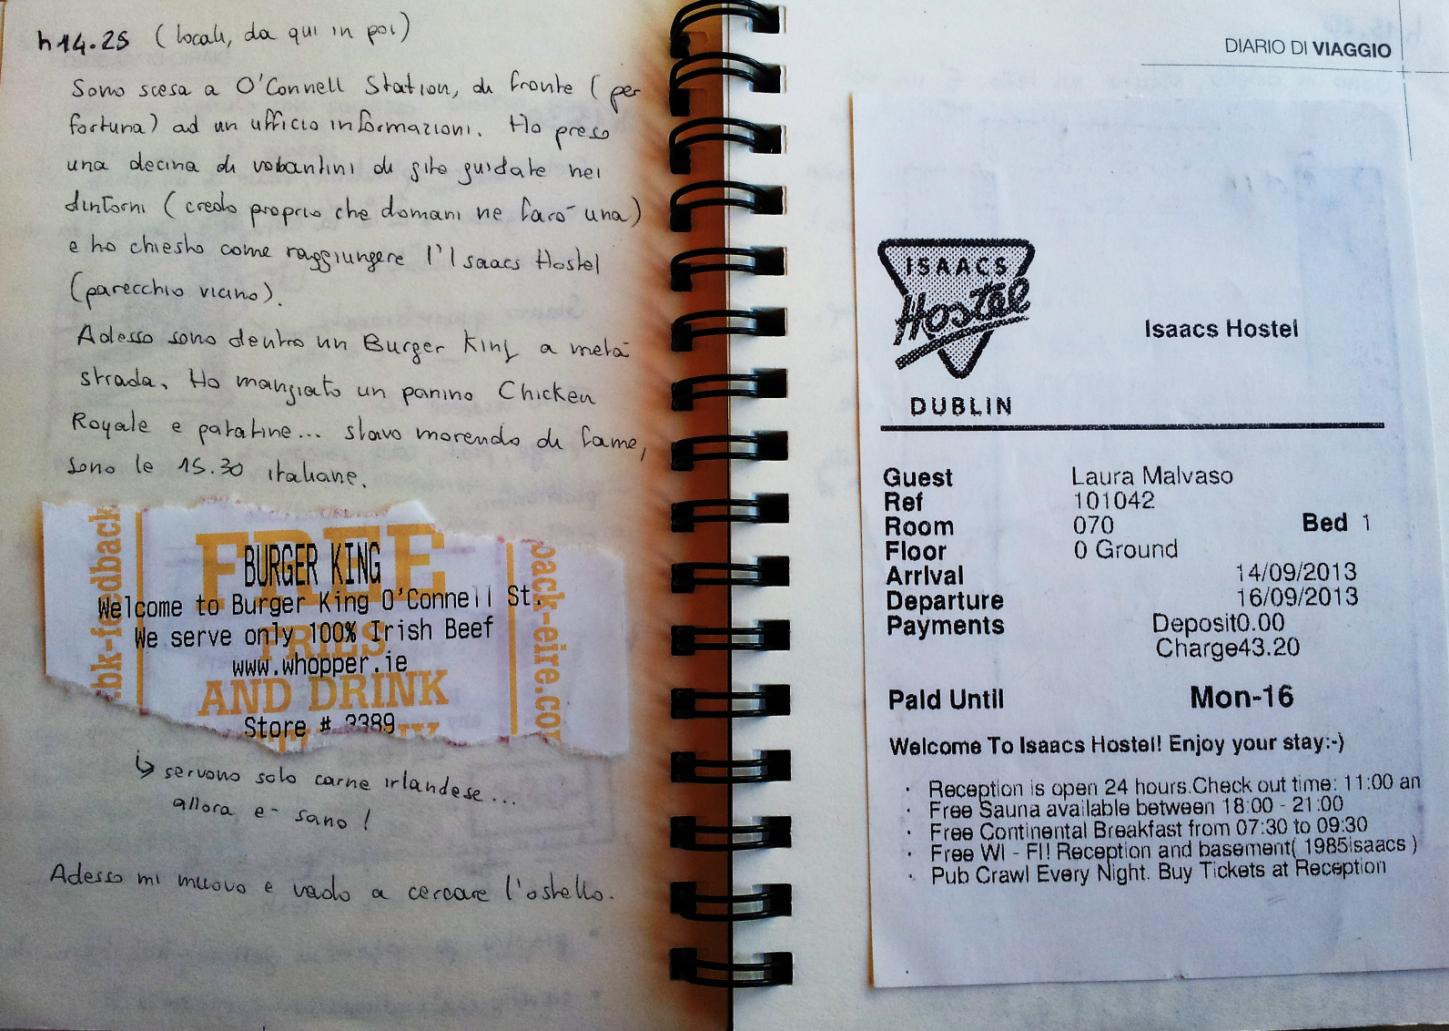 h14.25 (locali, da qui in poi)
Sono scesa a O'Connell Station, di fronte (per
fortuna) ad un ufficio informazioni. Ho preso
una decina di volantini di gite guidate nei
dintorni (credo proprio che domani ne farò una)
e ho chiesto come raggiungere l'Isaacs Hostel
(parecchio vicino).
Adesso sono dentro un Burger King a metà
strada. Ho mangiato un panino Chicken
Royale e patatine... stavo morendo di fame,
sono le 15.30 italiane.
bk-feedback
FREE
BURGER KING
Welcome to Burger King O'Connell St.
We serve only 100% Irish Beef
FRIES
www.whopper.ie
AND DRINK
Store # 3389
back-eire.co
↳ servono solo carne irlandese...
allora è sano!
Adesso mi muovo e vado a cercare l'ostello.
DIARIO DI VIAGGIO
ISAACS
Hostel
DUBLIN
Isaacs Hostel
Guest Laura Malvaso
Ref 101042
Room 070 Bed 1
Floor 0 Ground
Arrival 14/09/2013
Departure 16/09/2013
Payments Deposit0.00
Charge43.20
Paid Until Mon-16
Welcome To Isaacs Hostel! Enjoy your stay:-)
· Reception is open 24 hours.Check out time: 11:00 an
· Free Sauna available between 18:00 - 21:00
· Free Continental Breakfast from 07:30 to 09:30
· Free WI - FI! Reception and basement( 1985isaacs )
· Pub Crawl Every Night. Buy Tickets at Reception